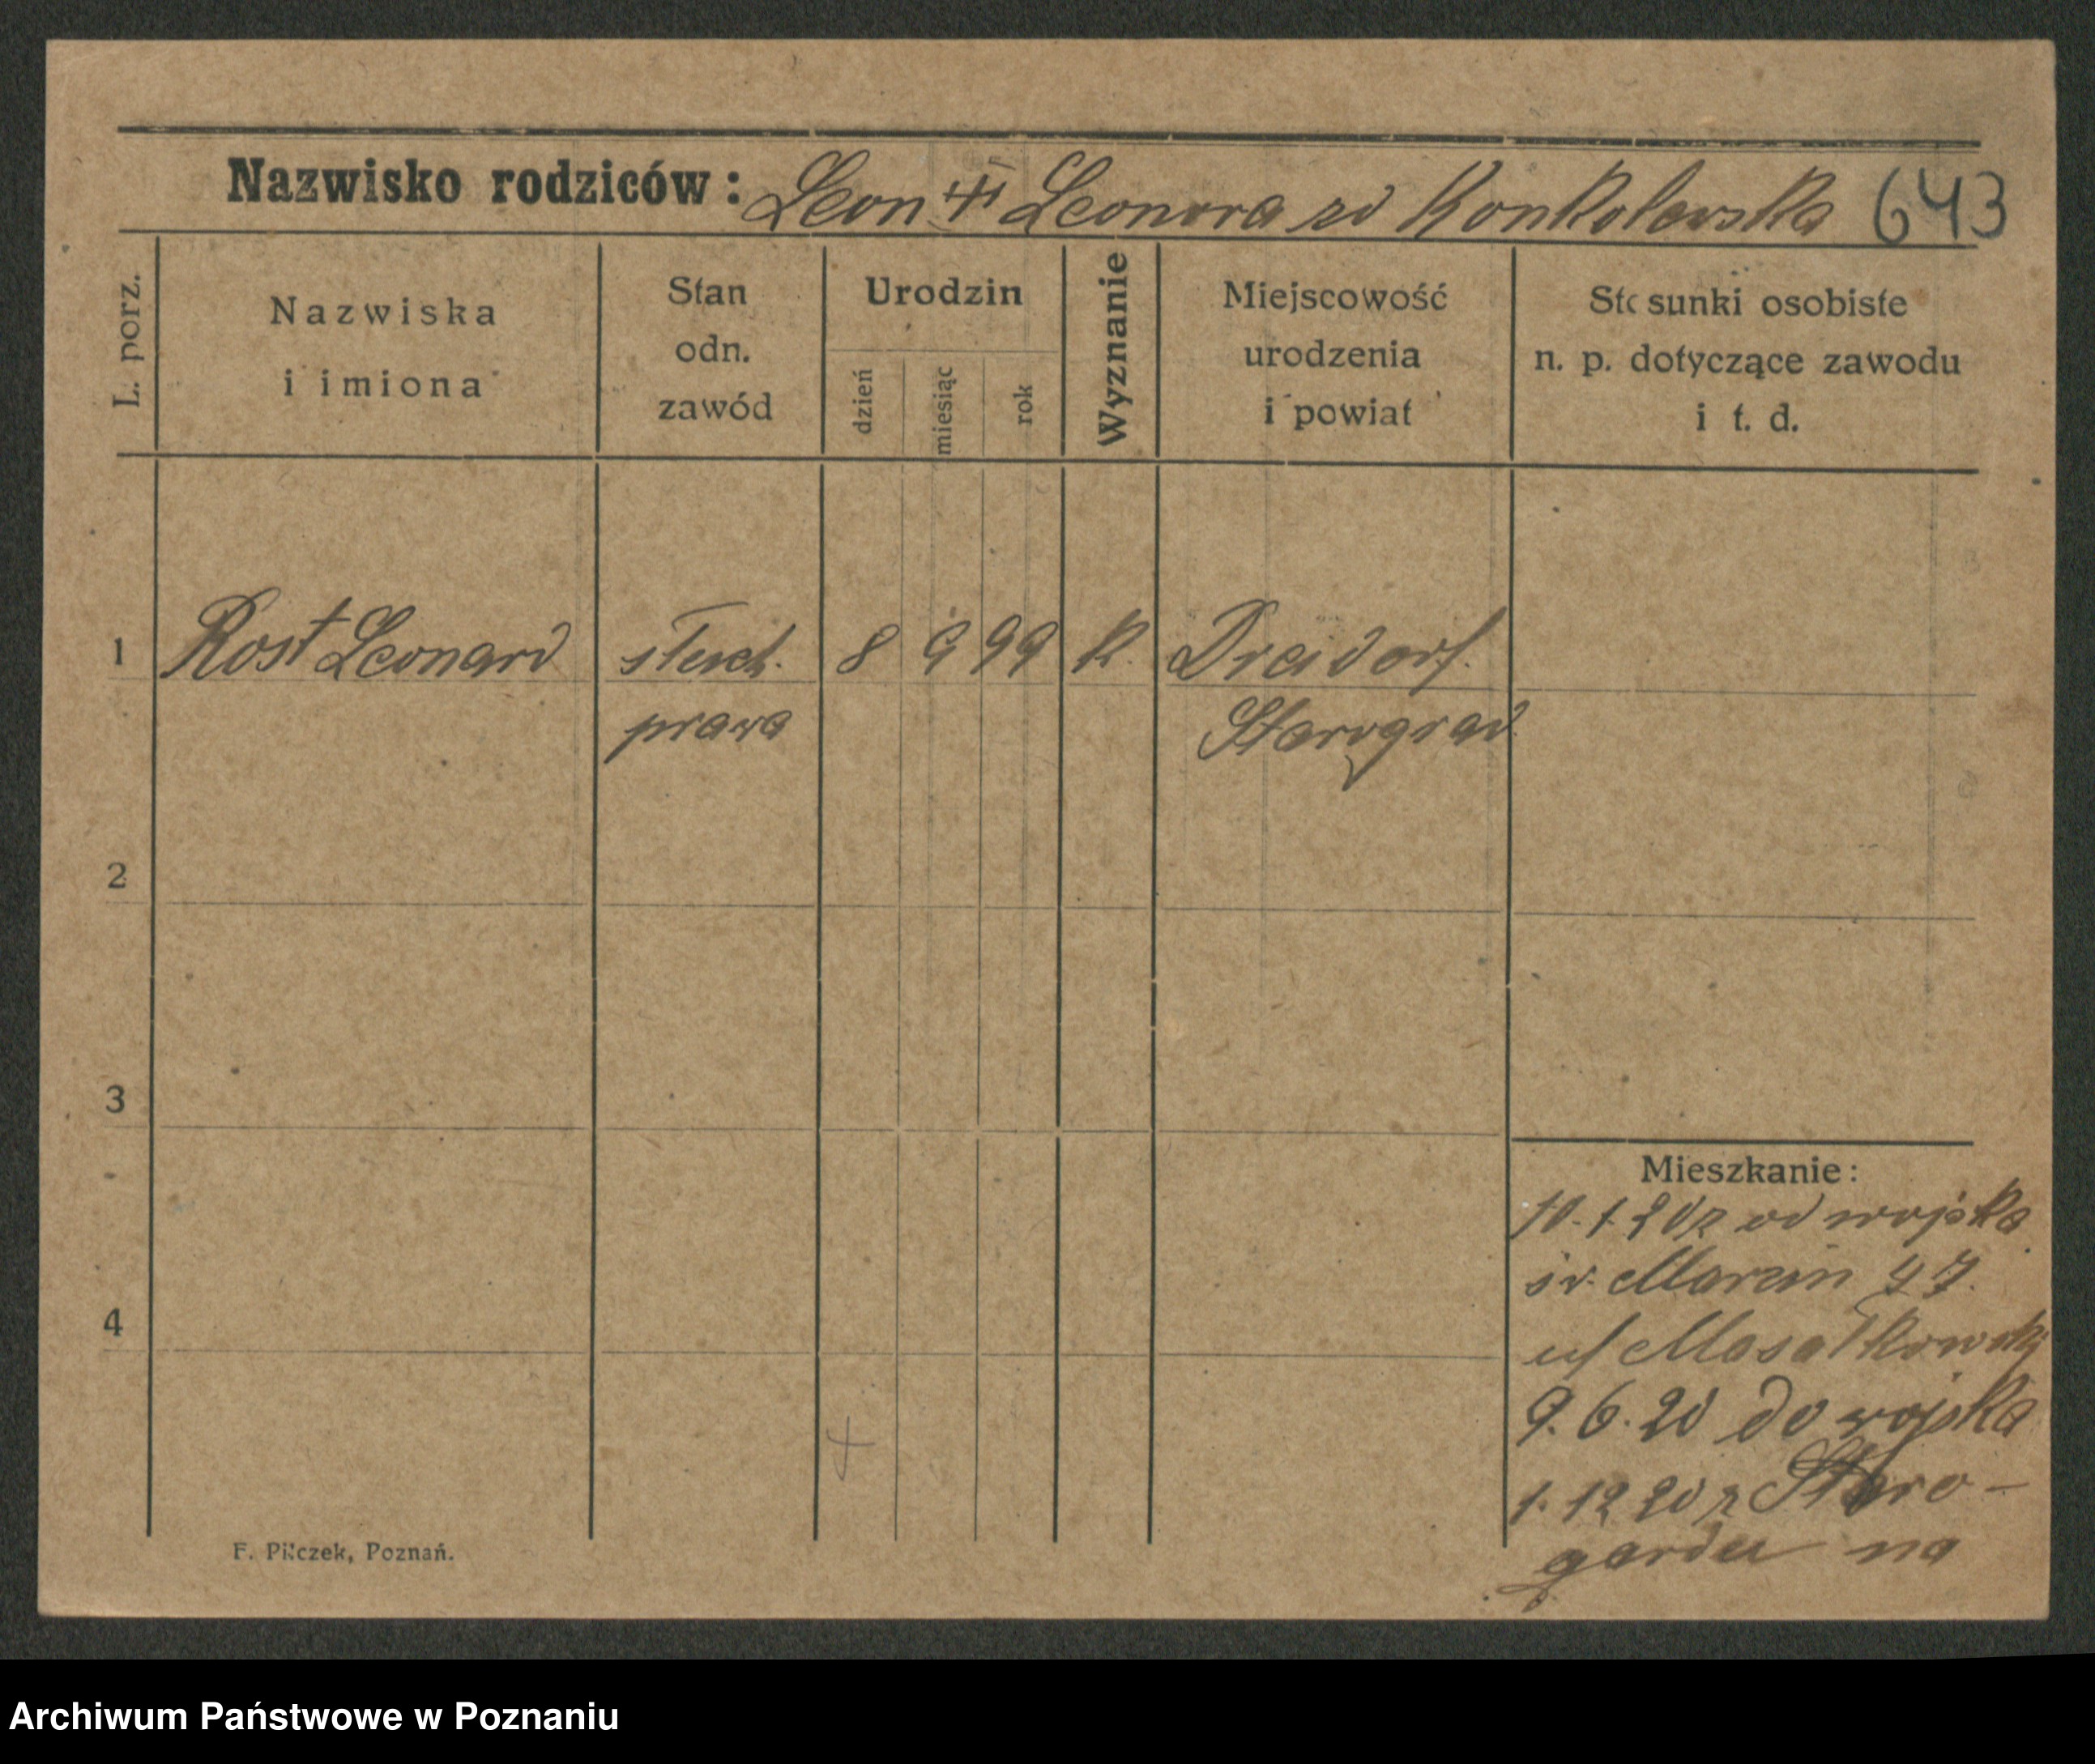 Nazwisko rodziców: Leon + Leonora zd Konkolewska 643
L. porz.
Nazwiska
i imiona
Stan
odn.
zawód
Urodzin
dzień
miesiąc
rok
Wyznanie
Miejscowość
urodzenia
i powiat
Stosunki osobiste
n. p. dotyczące zawodu
i t. d.
1 Rost Leonard słuch. 8 9 99 k. Dreidorf.
prawa Starogrard
2
3
4
Mieszkanie:
10.1.20 z od wojska
św. Marcin 47.
u/ Masałkowski
9.6.20 do wojska
1.12 20 z Staro-
gardu na
F. Pilczek, Poznań.
Archiwum Państwowe w Poznaniu